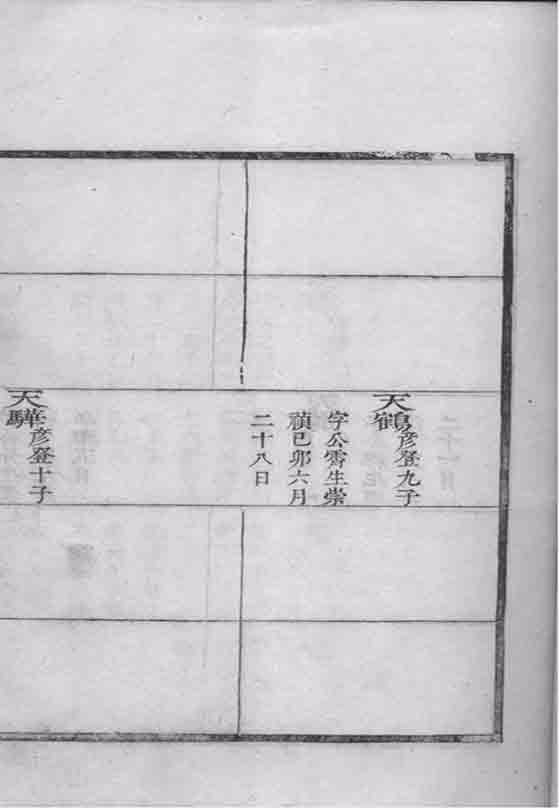 天鶴彦登九子
字公霄生崇
禎己卯六月
二十八日
天驊彦登十子